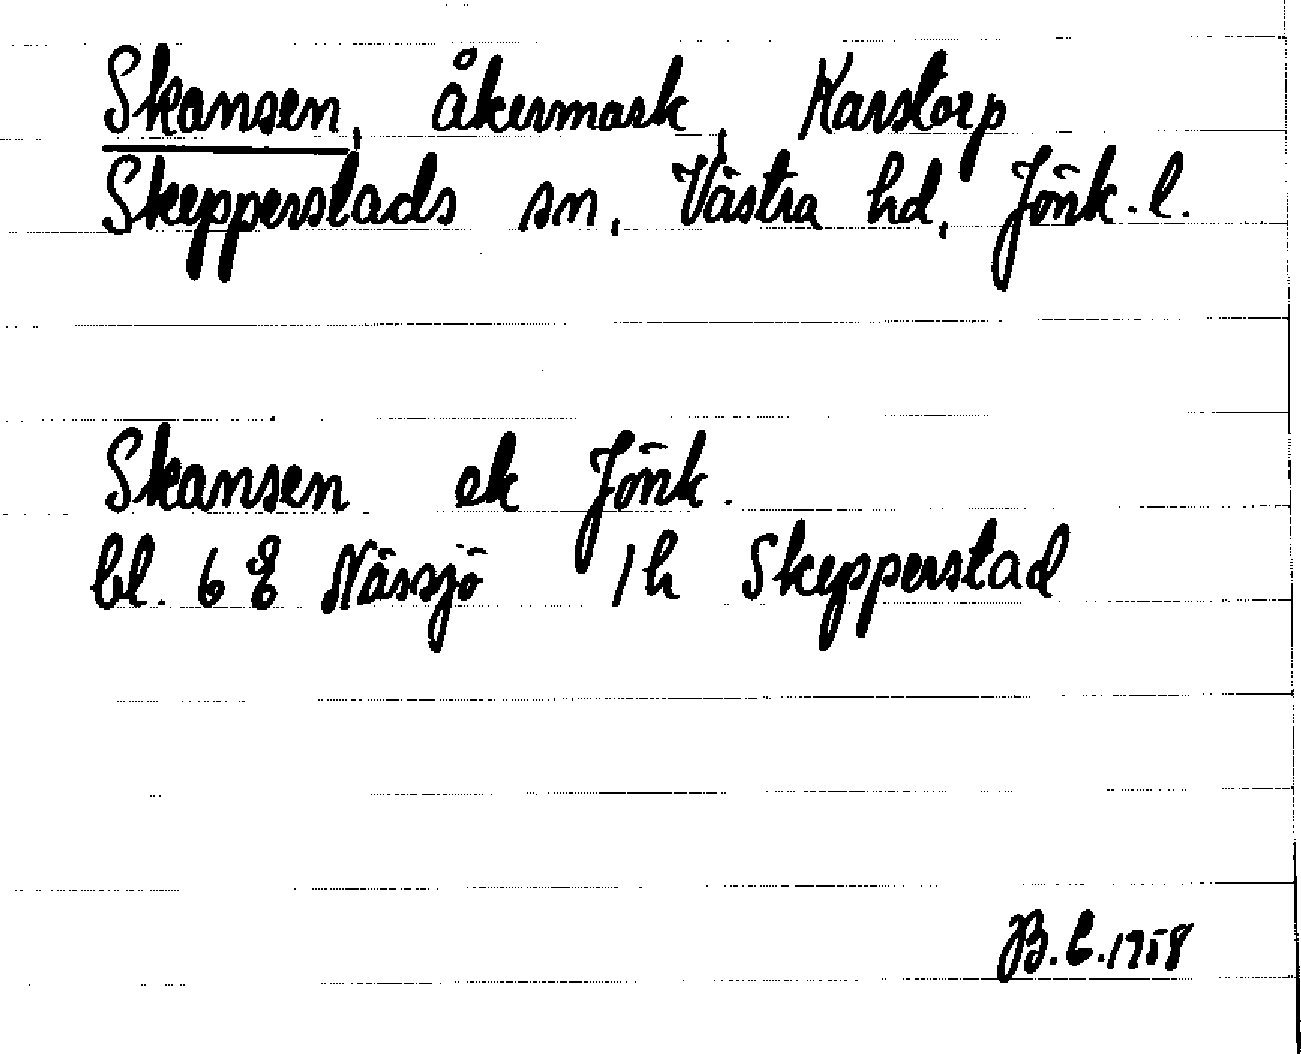 Skansen, åkermark, Karstorp
Skepperstads sn, Västra hd, Jönk. l.
Skansen ek Jönk.
bl. 6 E Nässjö 1h Skepperstad
B.E.1958